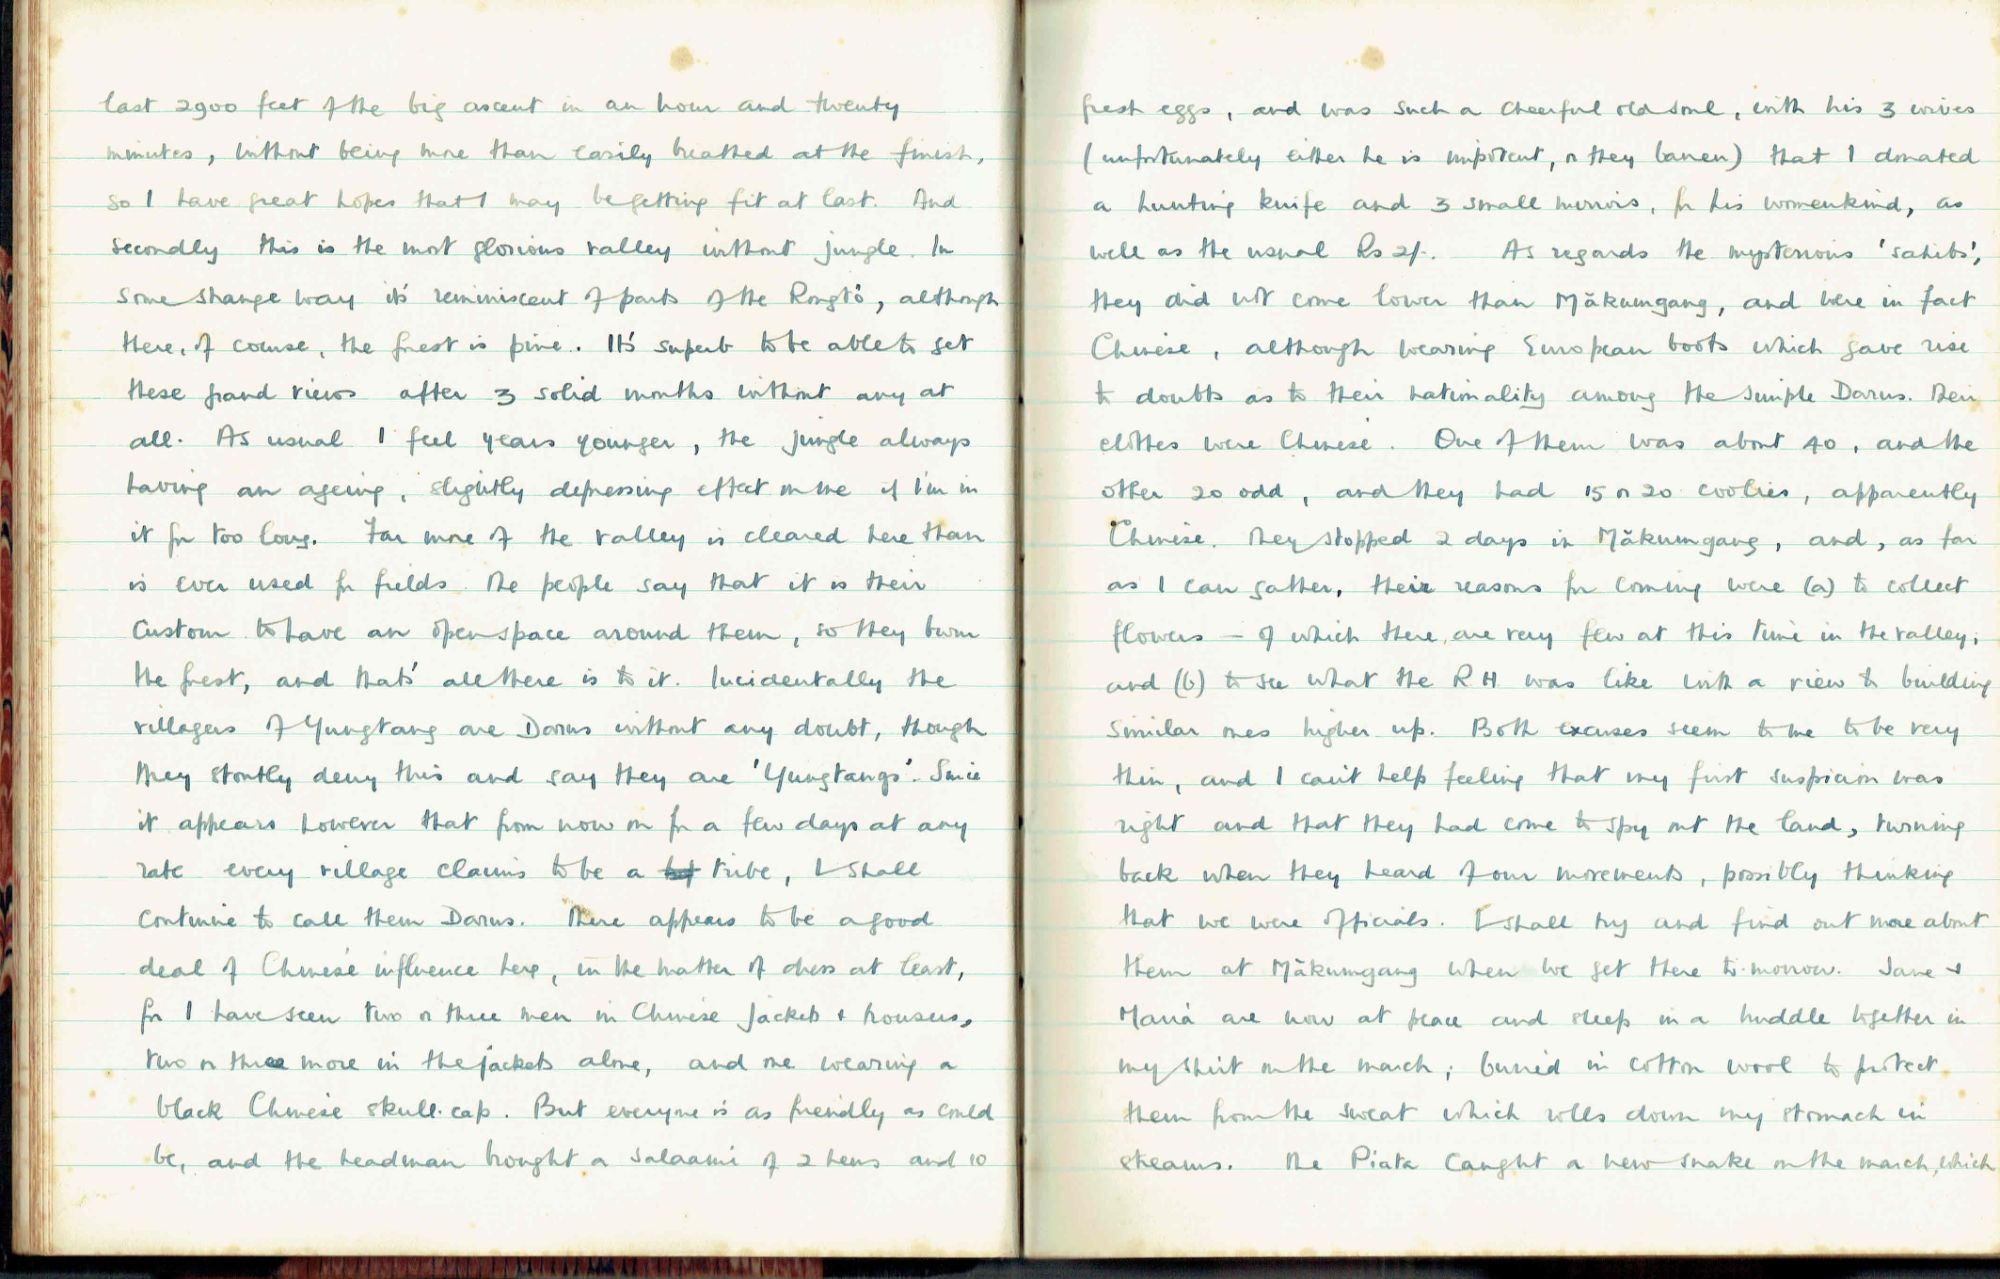 last 2900 feet of the big ascent in an hour and twenty
minutes, without being more than easily breathed at the finish,
so I have great hopes that I may be getting fit at last. And
secondly this is the most glorious valley without jungle. In
some strange way it's reminiscent of parts of the Rongtö, although
there, of course, the forest is pine. It's superb to be able to get
these grand views after 3 solid months without any at
all. As usual I feel years younger, the jungle always
having an ageing, slightly depressing effect on me if I'm in
it for too long. Far more of the valley is cleared here than
is ever used for fields. The people say that it is their
custom to have an open space around them, so they burn
the forest, and that's all there is to it. Incidentally the
villagers of Yungtang are Darus without any doubt, though
they stoutly deny this and say they are 'Yungtangs'. Since
it appears however that from now on for a few days at any
rate every village claims to be a tribe, I shall
continue to call them Darus. There appears to be a good
deal of Chinese influence here, in the matter of dress at least,
for I have seen two or three men in Chinese jackets & trousers,
two or three more in the jackets alone, and one wearing a
black Chinese skull-cap. But everyone is as friendly as could
be, and the headman brought a salaami of 2 hens and 10
fresh eggs, and was such a cheerful old soul, with his 3 wives
(unfortunately either he is impotent, or they barren) that I donated
a hunting knife and 3 small mirrors, for his womenkind, as
well as the usual Rs 2/-. As regards the mysterious 'sahibs',
they did not come lower than Mǎkumgang, and were in fact
Chinese, although wearing European boots which gave rise
to doubts as to their nationality among the simple Darus. Their
clothes were Chinese. One of them was about 40, and the
other 20 odd, and they had 15 or 20 coolies, apparently
Chinese. They stopped 2 days in Mǎkumgang, and, as far
as I can gather, their reasons for coming were (a) to collect
flowers – of which there are very few at this time in the valley,
and (b) to see what the R.H. was like with a view to building
similar ones higher up. Both excuses seem to me to be very
thin, and I can't help feeling that my first suspicion was
right and that they had come to spy out the land, turning
back when they heard of our movements, possibly thinking
that we were officials. I shall try and find out more about
them at Mǎkumgang when we get there to-morrow. Jane &
Maria are now at peace and sleep in a huddle together in
my shirt on the march; buried in cotton wool to protect
them from the sweat which rolls down my stomach in
streams. The Piata caught a new snake on the march, which